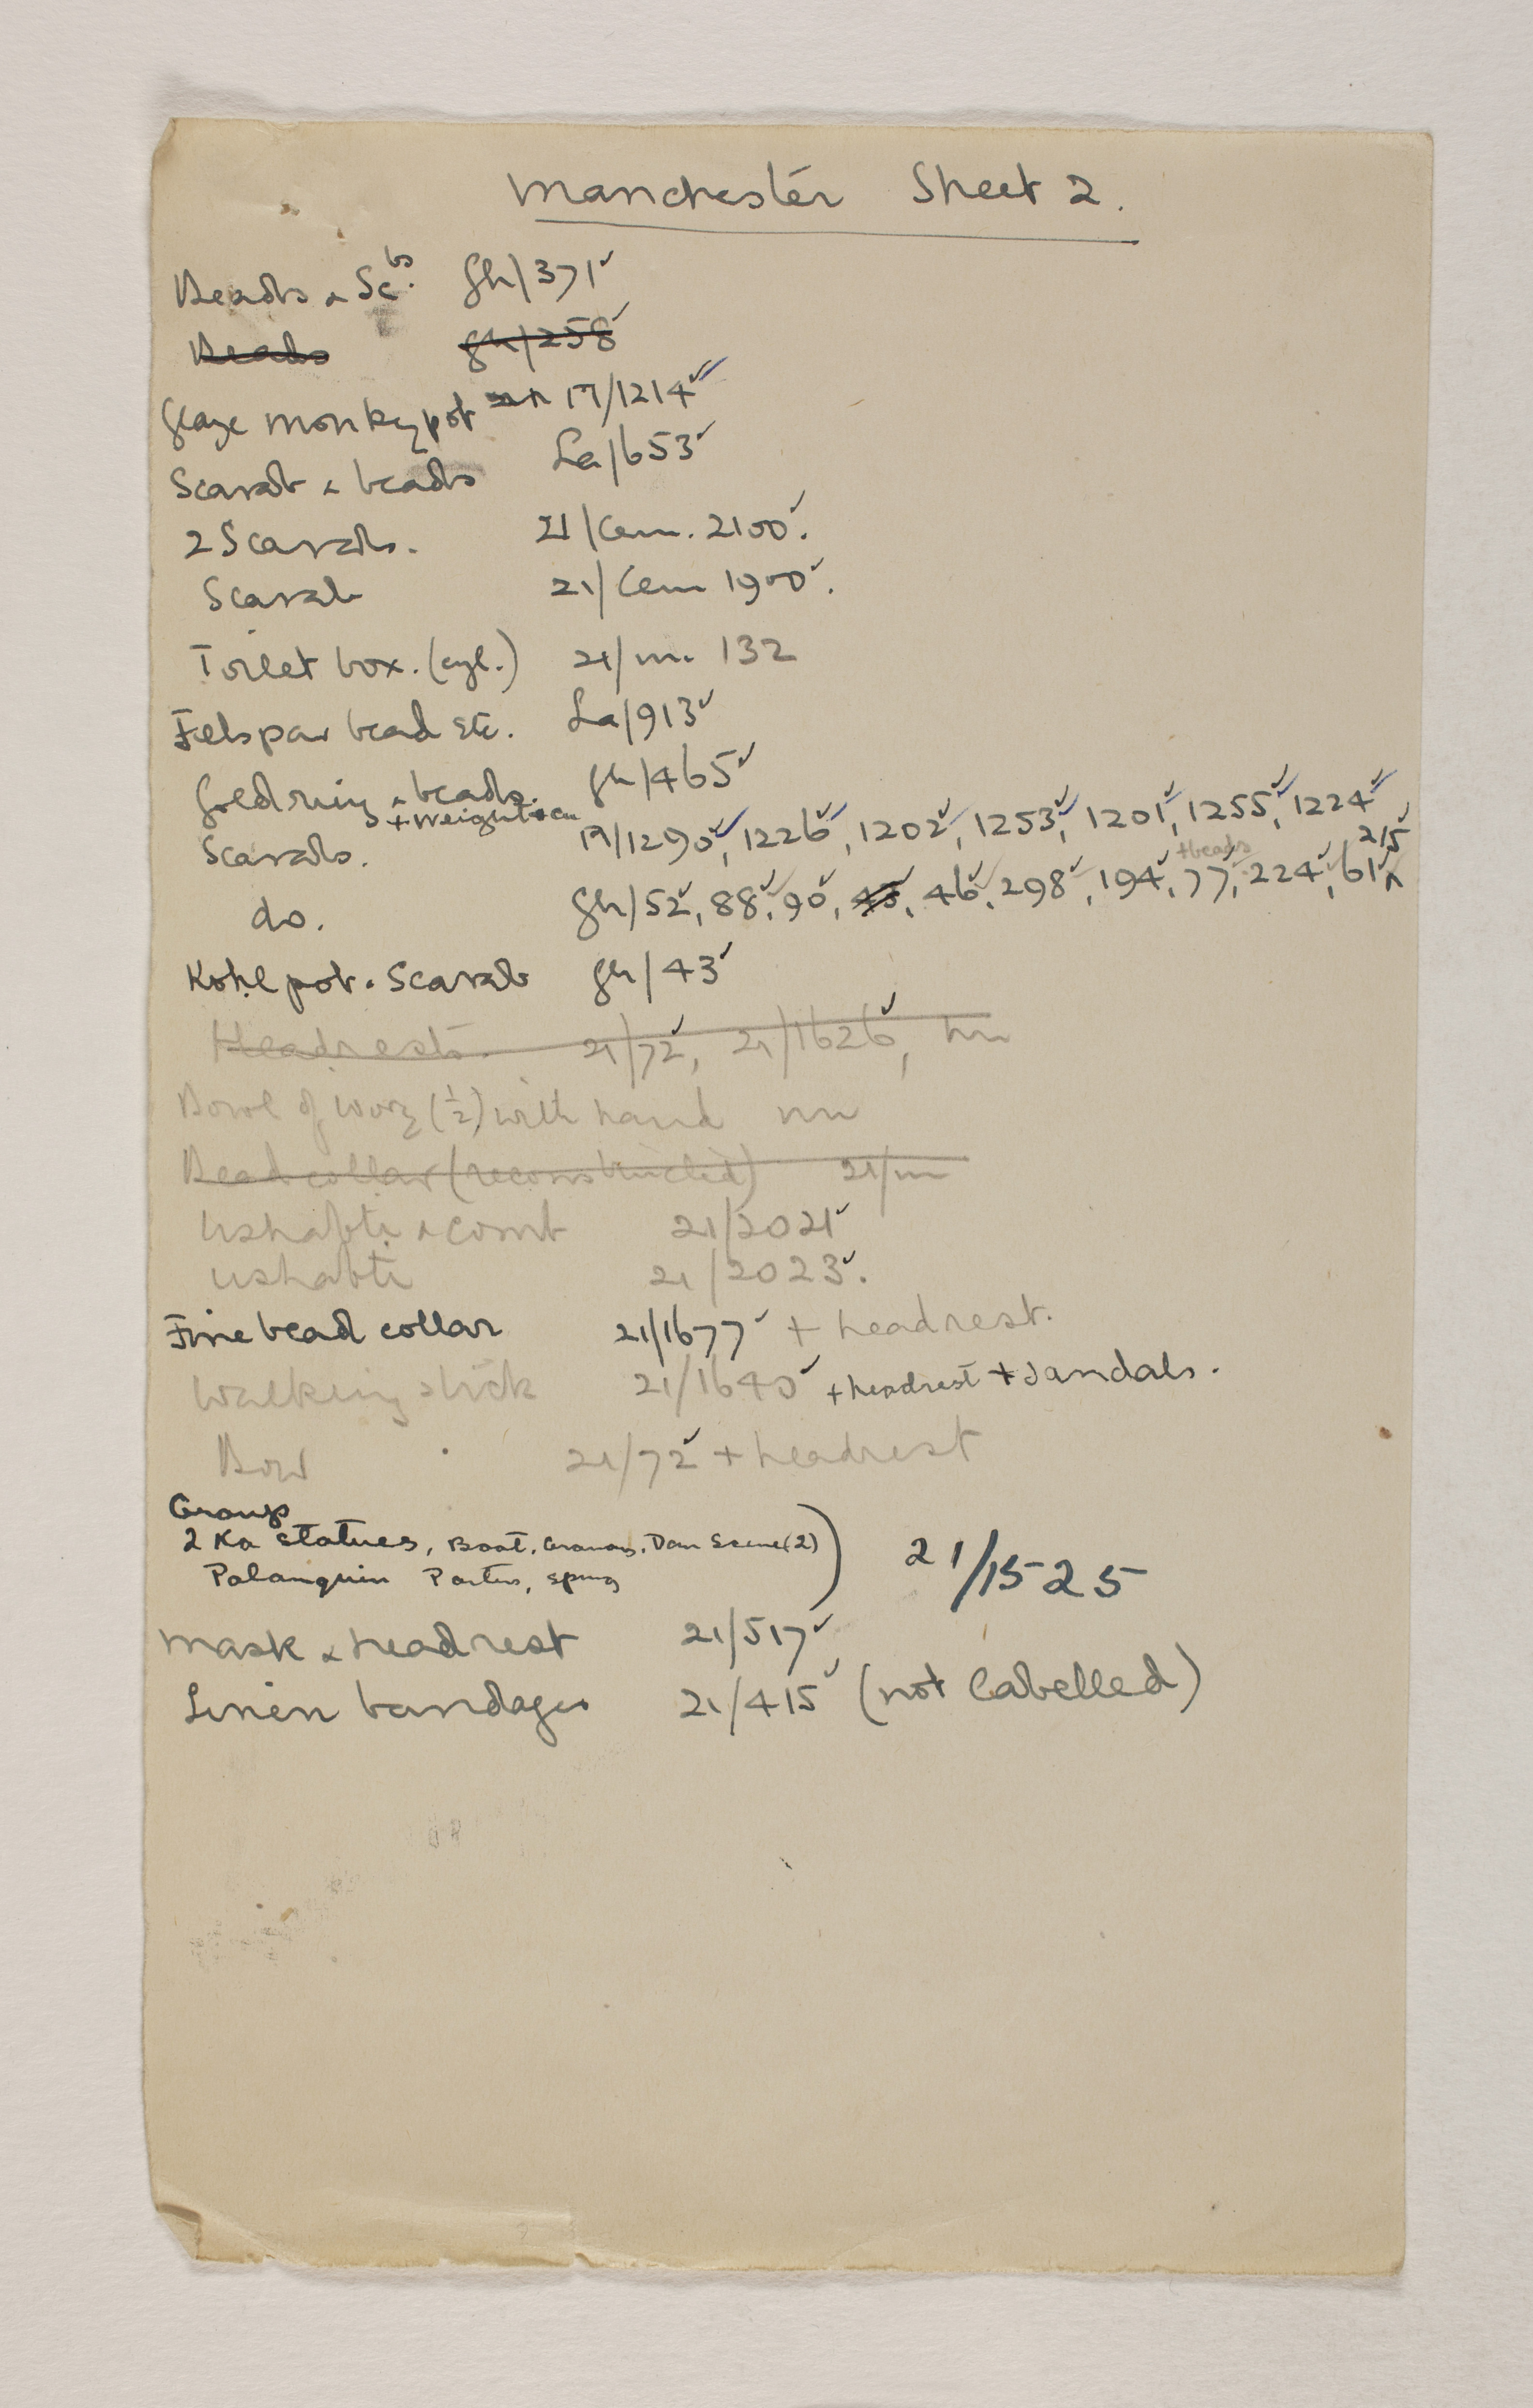 Manchester Sheet 2.
Beads & Scbs. gh/371✓
Beads gh/258✓
Glaze monkey pot 19/1214✓
Scarab & beads La/653✓
2 Scarabs. 21/Cem. 2100✓.
Scarab 21/Cem 1900✓.
Toilet box. (cyl.) 21/m. 132
Felspar bead etc. La/913✓
Gold ring & beads. gh/465✓
+ Weight
Scarabs. 19/1290✓, 1226✓, 1202✓, 1253✓, 1201✓, 1255✓, 1224✓
+beads 215✓
do. gh/52✓, 88✓, 90✓, 45, 46✓, 298✓, 194✓, 77✓, 224✓, 61✓
Kohl pot. Scarab gh/43✓
Headrests. 21/72✓, 21/1626✓, nn
Bowl of ivory (½) with hand nn
Bead collar (reconstructed) 21/m
Ushabti & comb 21/2021✓
Ushabti 21/2023✓.
Fine bead collar 21/1677✓ + headrest.
Walking stick 21/1640✓ + headrest + Sandals.
Bow 21/72✓ + headrest
Group
2 Ka statues, Boat, Granary, Dom Scene(2)
Palanquin Porters, 21/1525
Mask & headrest 21/517✓
Linen bandages 21/415✓ (not labelled)